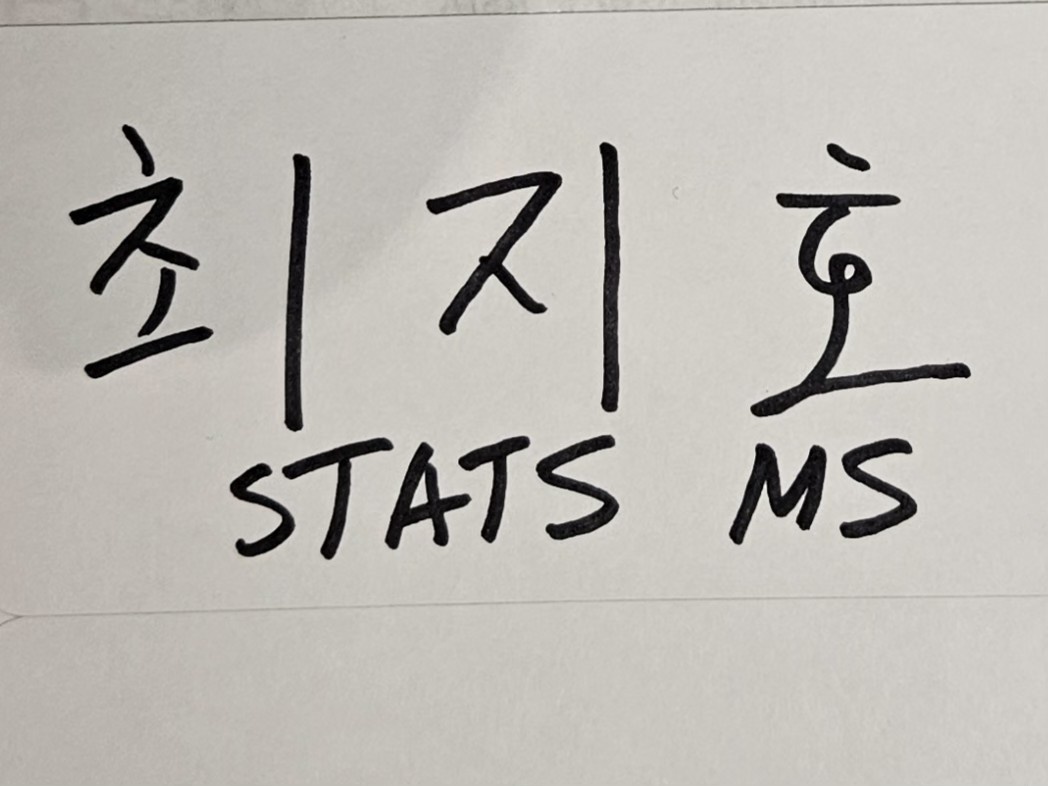 최지호
STATS MS